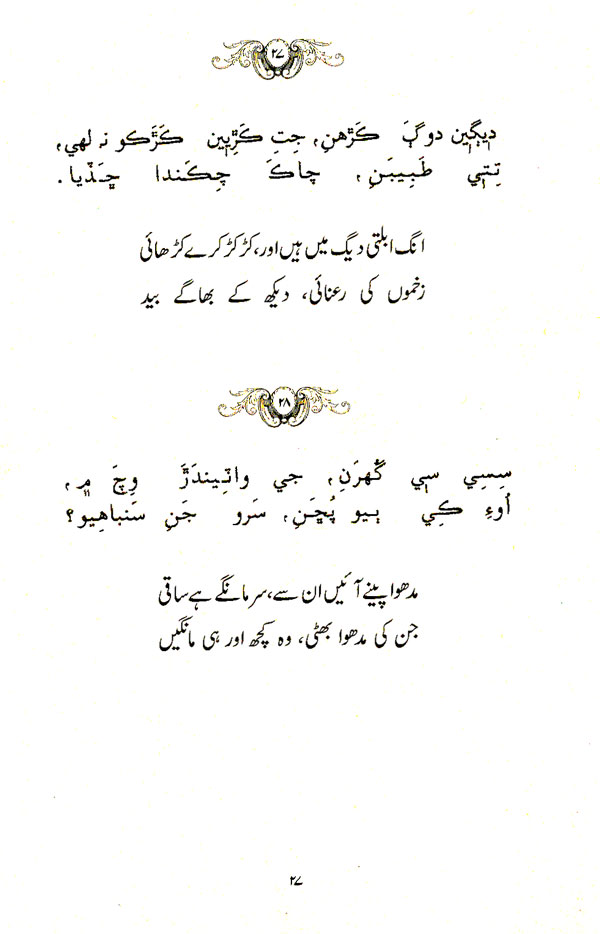 ۲۷
ديڳين دوڳَ ڪَڙهنِ، جِتِ ڪَڙِيين ڪَڙَڪو نہ لهي،
تِتي طَبِيبَنِ، چاڪَ چِڪَندا ڇَڏيا.
انگ ابلتی دیگ میں ہیں اور، کڑ کڑ کرے کڑھائی
زخموں کی رعنائی، دیکھ کے بھاگے بید
۲۸
سِسِي سي گُهرَنِ، جي واٽِيندَڙَ وِچَ ۾،
اُوءِ ڪِي ٻيو پُڇَنِ، سَرو جَنِ سَنباهِيو؟
مدھوا پینے آئیں ان سے، سر مانگے ہے ساقی
جن کی مدھوا بھٹی، وہ کچھ اور ہی مانگیں
۲۷